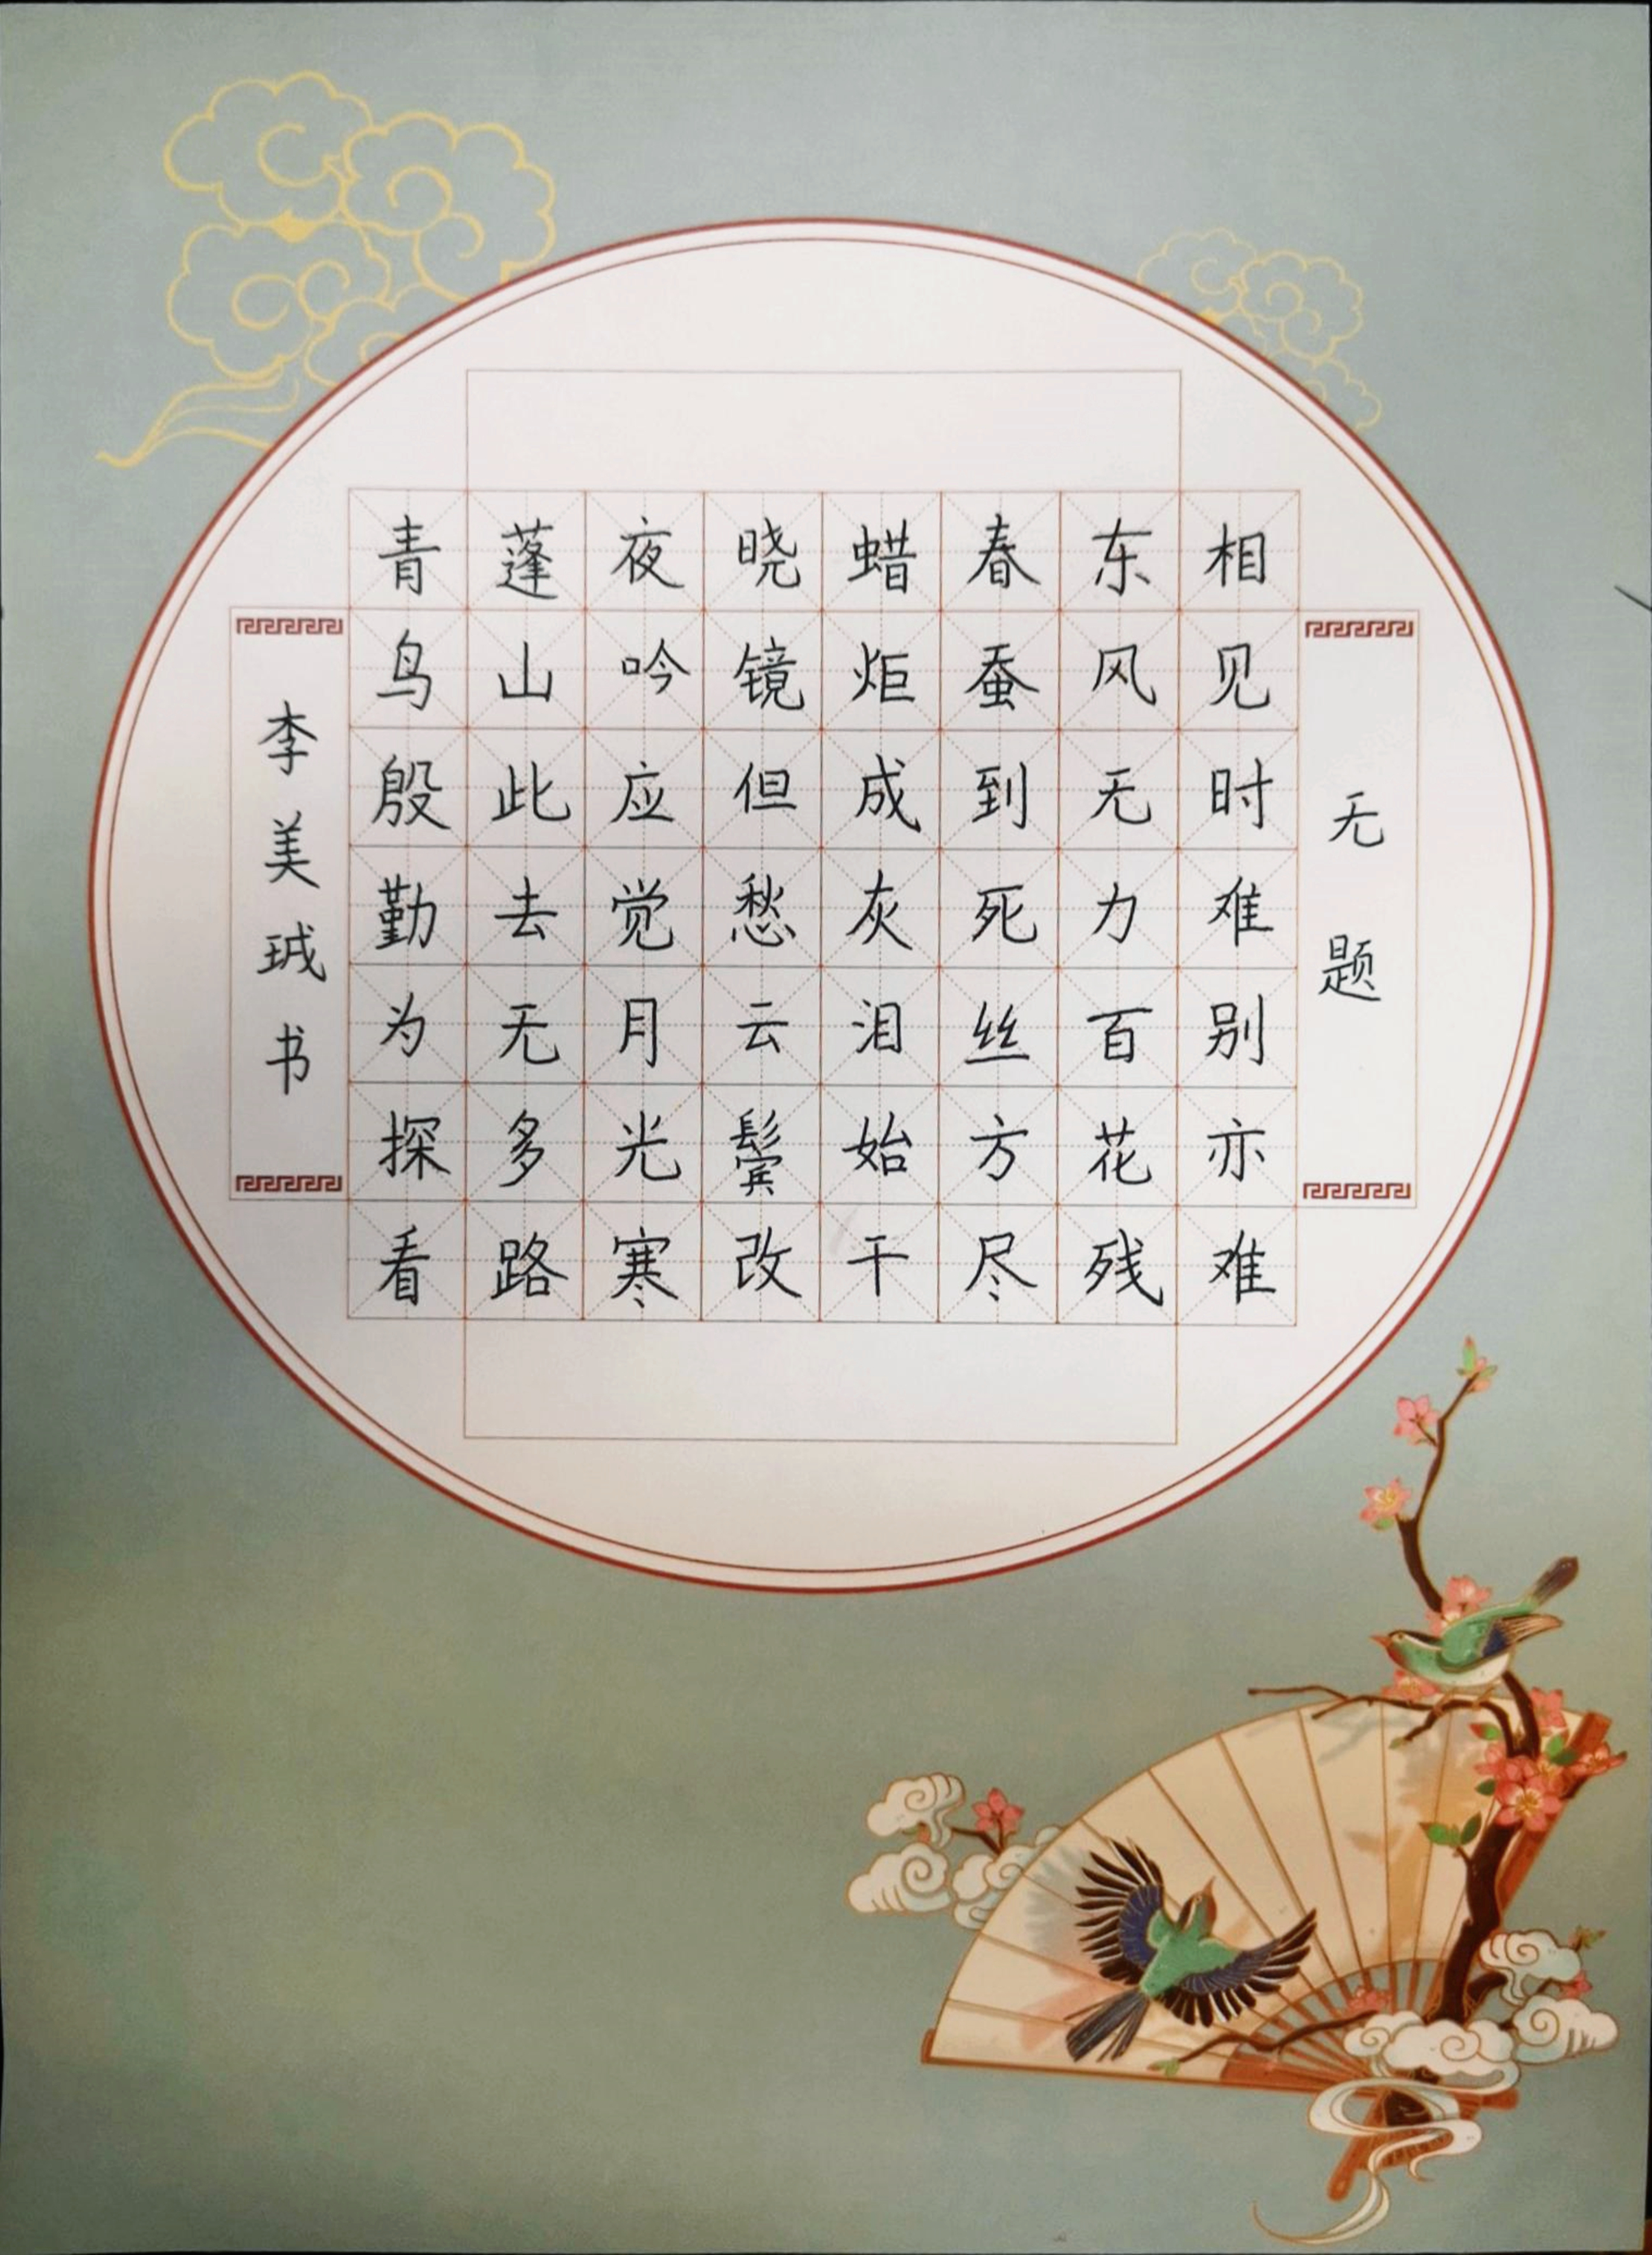 无题
相见时难别亦难
东风无力百花残
春蚕到死丝方尽
蜡炬成灰泪始干
晓镜但愁云鬓改
夜吟应觉月光寒
蓬山此去无多路
青鸟殷勤为探看
李美珹书